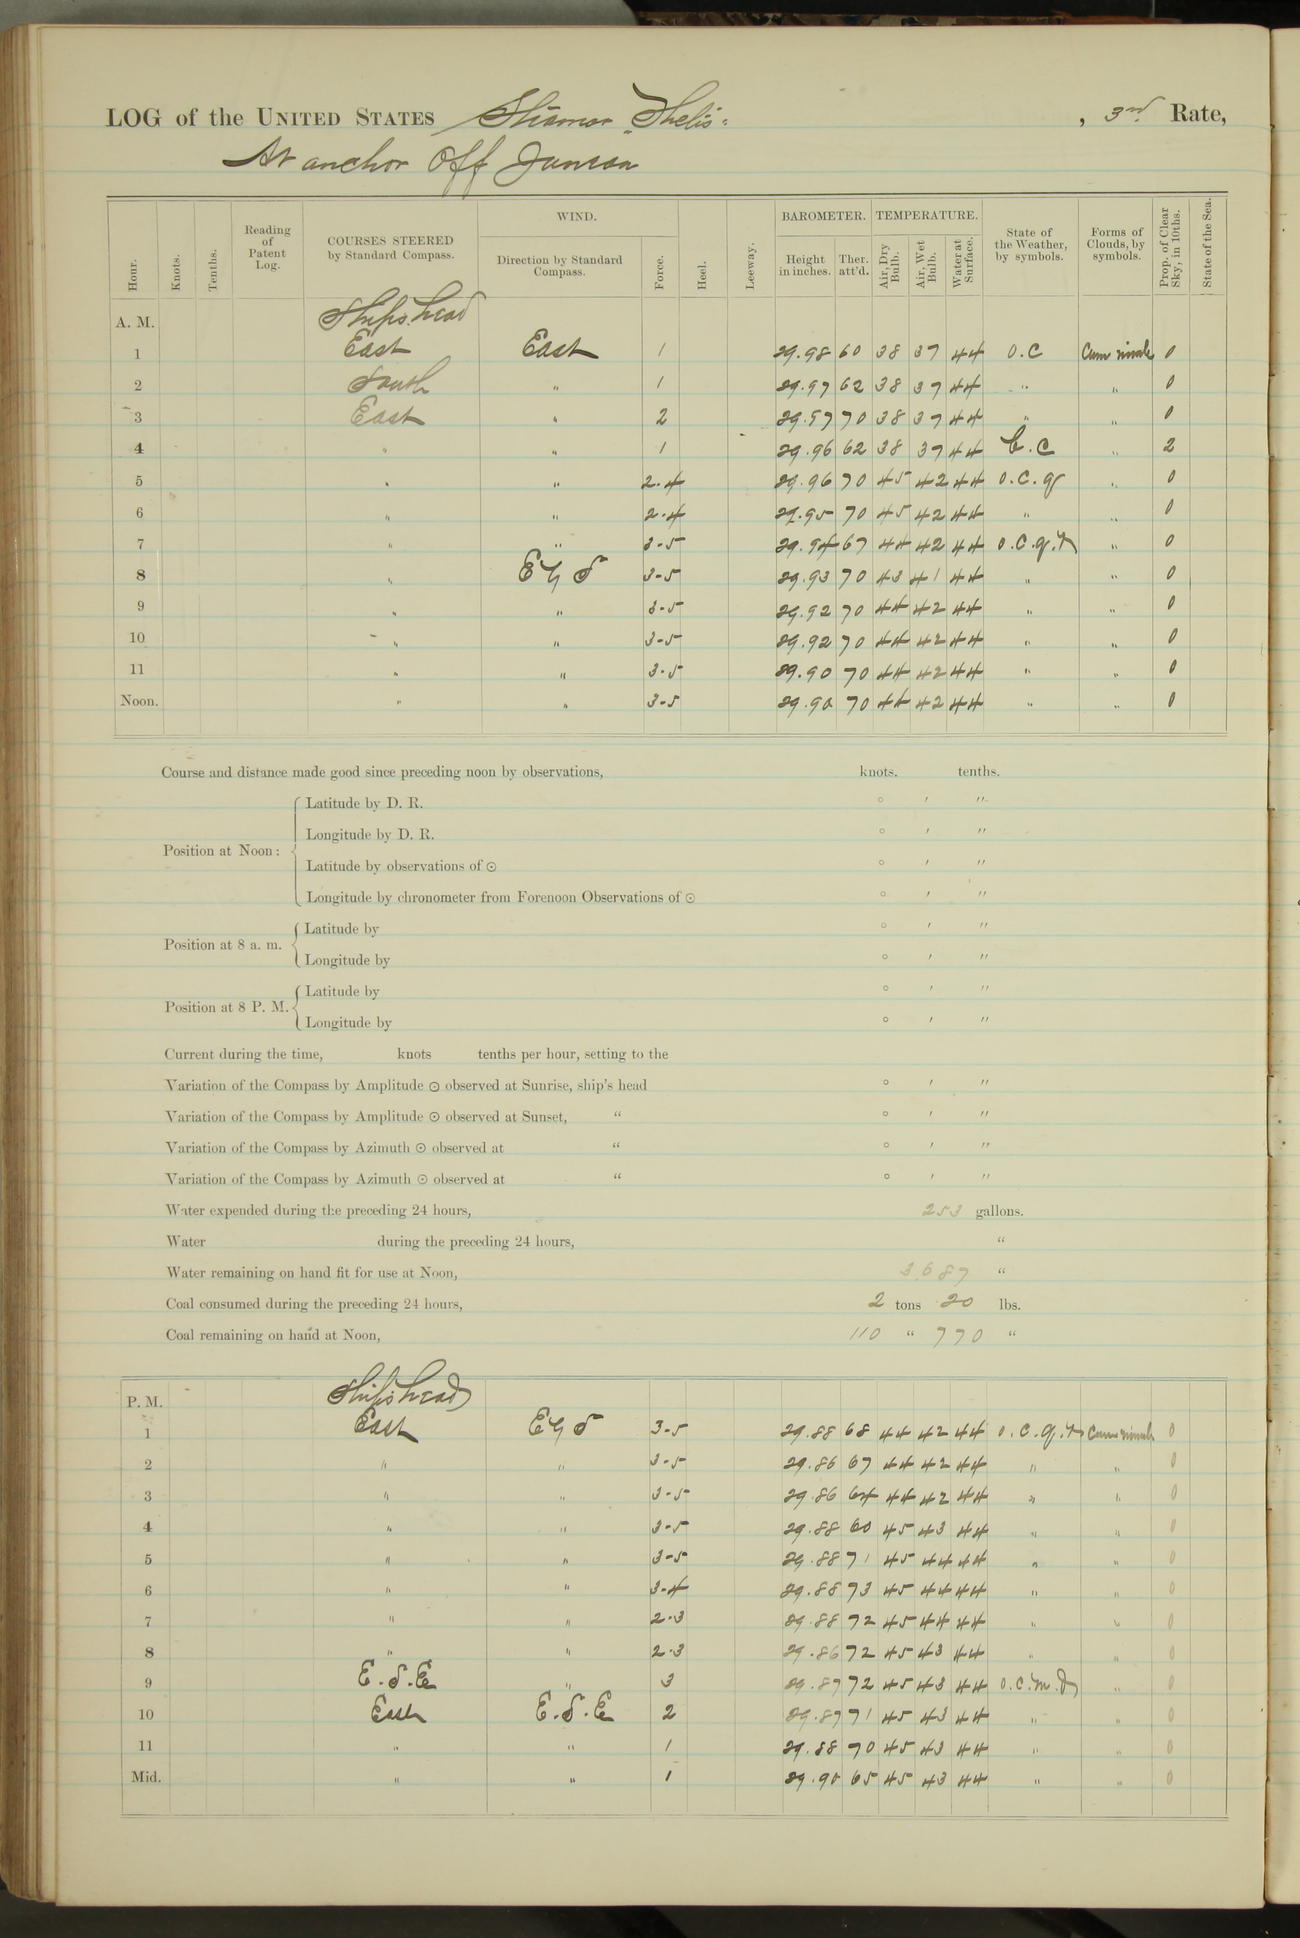 LOG of the UNITED STATES Steamer "Thetis" , 3rd Rate,
At anchor Off Juneau
Hour. Knots. Tenths. Reading of Patent Log. COURSES STEERED by Standard Compass. WIND. Direction by Standard Compass. Force. Heel. Leeway. BAROMETER. Height in inches. Ther. att'd. TEMPERATURE. Air, Dry Bulb. Air, Wet Bulb. Water at Surface. State of the Weather, by symbols. Forms of Clouds, by symbols. Prop. of Clear Sky, in 10ths. State of the Sea.
A. M. Ship's head
1 East East 1 29.98 60 38 37 44 o.c Cum nimb 0
2 South " 1 29.97 62 38 37 44 " " 0
3 East " 2 29.97 70 38 37 44 " " 0
4 " " 1 29.96 62 38 37 44 b.c " 2
5 " " 2-4 29.96 70 45 42 44 o.c.q " 0
6 " " 2-4 29.95 70 45 42 44 " " 0
7 " " 3-5 29.94 67 44 42 44 o.c.q.r " 0
8 " E by S 3-5 29.93 70 43 41 44 " " 0
9 " " 3-5 29.92 70 44 42 44 " " 0
10 " " 3-5 29.92 70 44 42 44 " " 0
11 " " 3-5 29.90 70 44 42 44 " " 0
Noon. " " 3-5 29.90 70 44 42 44 " " 0
Course and distance made good since preceding noon by observations, knots. tenths.
Latitude by D. R. ° ' "
Longitude by D. R. ° ' "
Position at Noon:
Latitude by observations of ☉ ° ' "
Longitude by chronometer from Forenoon Observations of ☉ ° ' "
Latitude by ° ' "
Position at 8 a. m.
Longitude by ° ' "
Latitude by ° ' "
Position at 8 P. M.
Longitude by ° ' "
Current during the time, knots tenths per hour, setting to the
Variation of the Compass by Amplitude ☉ observed at Sunrise, ship's head ° ' "
Variation of the Compass by Amplitude ☉ observed at Sunset, " ° ' "
Variation of the Compass by Azimuth ☉ observed at " ° ' "
Variation of the Compass by Azimuth ☉ observed at " ° ' "
Water expended during the preceding 24 hours, 253 gallons.
Water during the preceding 24 hours, "
Water remaining on hand fit for use at Noon, 3,687 "
Coal consumed during the preceding 24 hours, 2 tons 20 lbs.
Coal remaining on hand at Noon, 110 " 770 "
P. M. Ship's head
1 East E by S 3-5 29.88 68 44 42 44 o.c.q.r Cum nimb 0
2 " " 3-5 29.86 67 44 42 44 " " 0
3 " " 3-5 29.86 64 44 42 44 " " 0
4 " " 3-5 29.88 60 45 43 44 " " 0
5 " " 3-5 29.88 71 45 44 44 " " 0
6 " " 3-4 29.88 73 45 44 44 " " 0
7 " " 2-3 29.88 72 45 44 44 " " 0
8 " " 2-3 29.86 72 45 43 44 " " 0
9 E.S.E " 3 29.87 72 45 43 44 o.c.m.d " 0
10 East E.S.E 2 29.87 71 45 43 44 " " 0
11 " " 1 29.88 70 45 43 44 " " 0
Mid. " " 1 29.90 65 45 43 44 " " 0